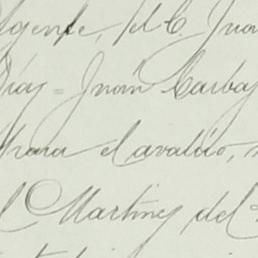 Agente, el C. Juan
Díaz = Juan Carbaj
para el avalúo,
l Martinez del